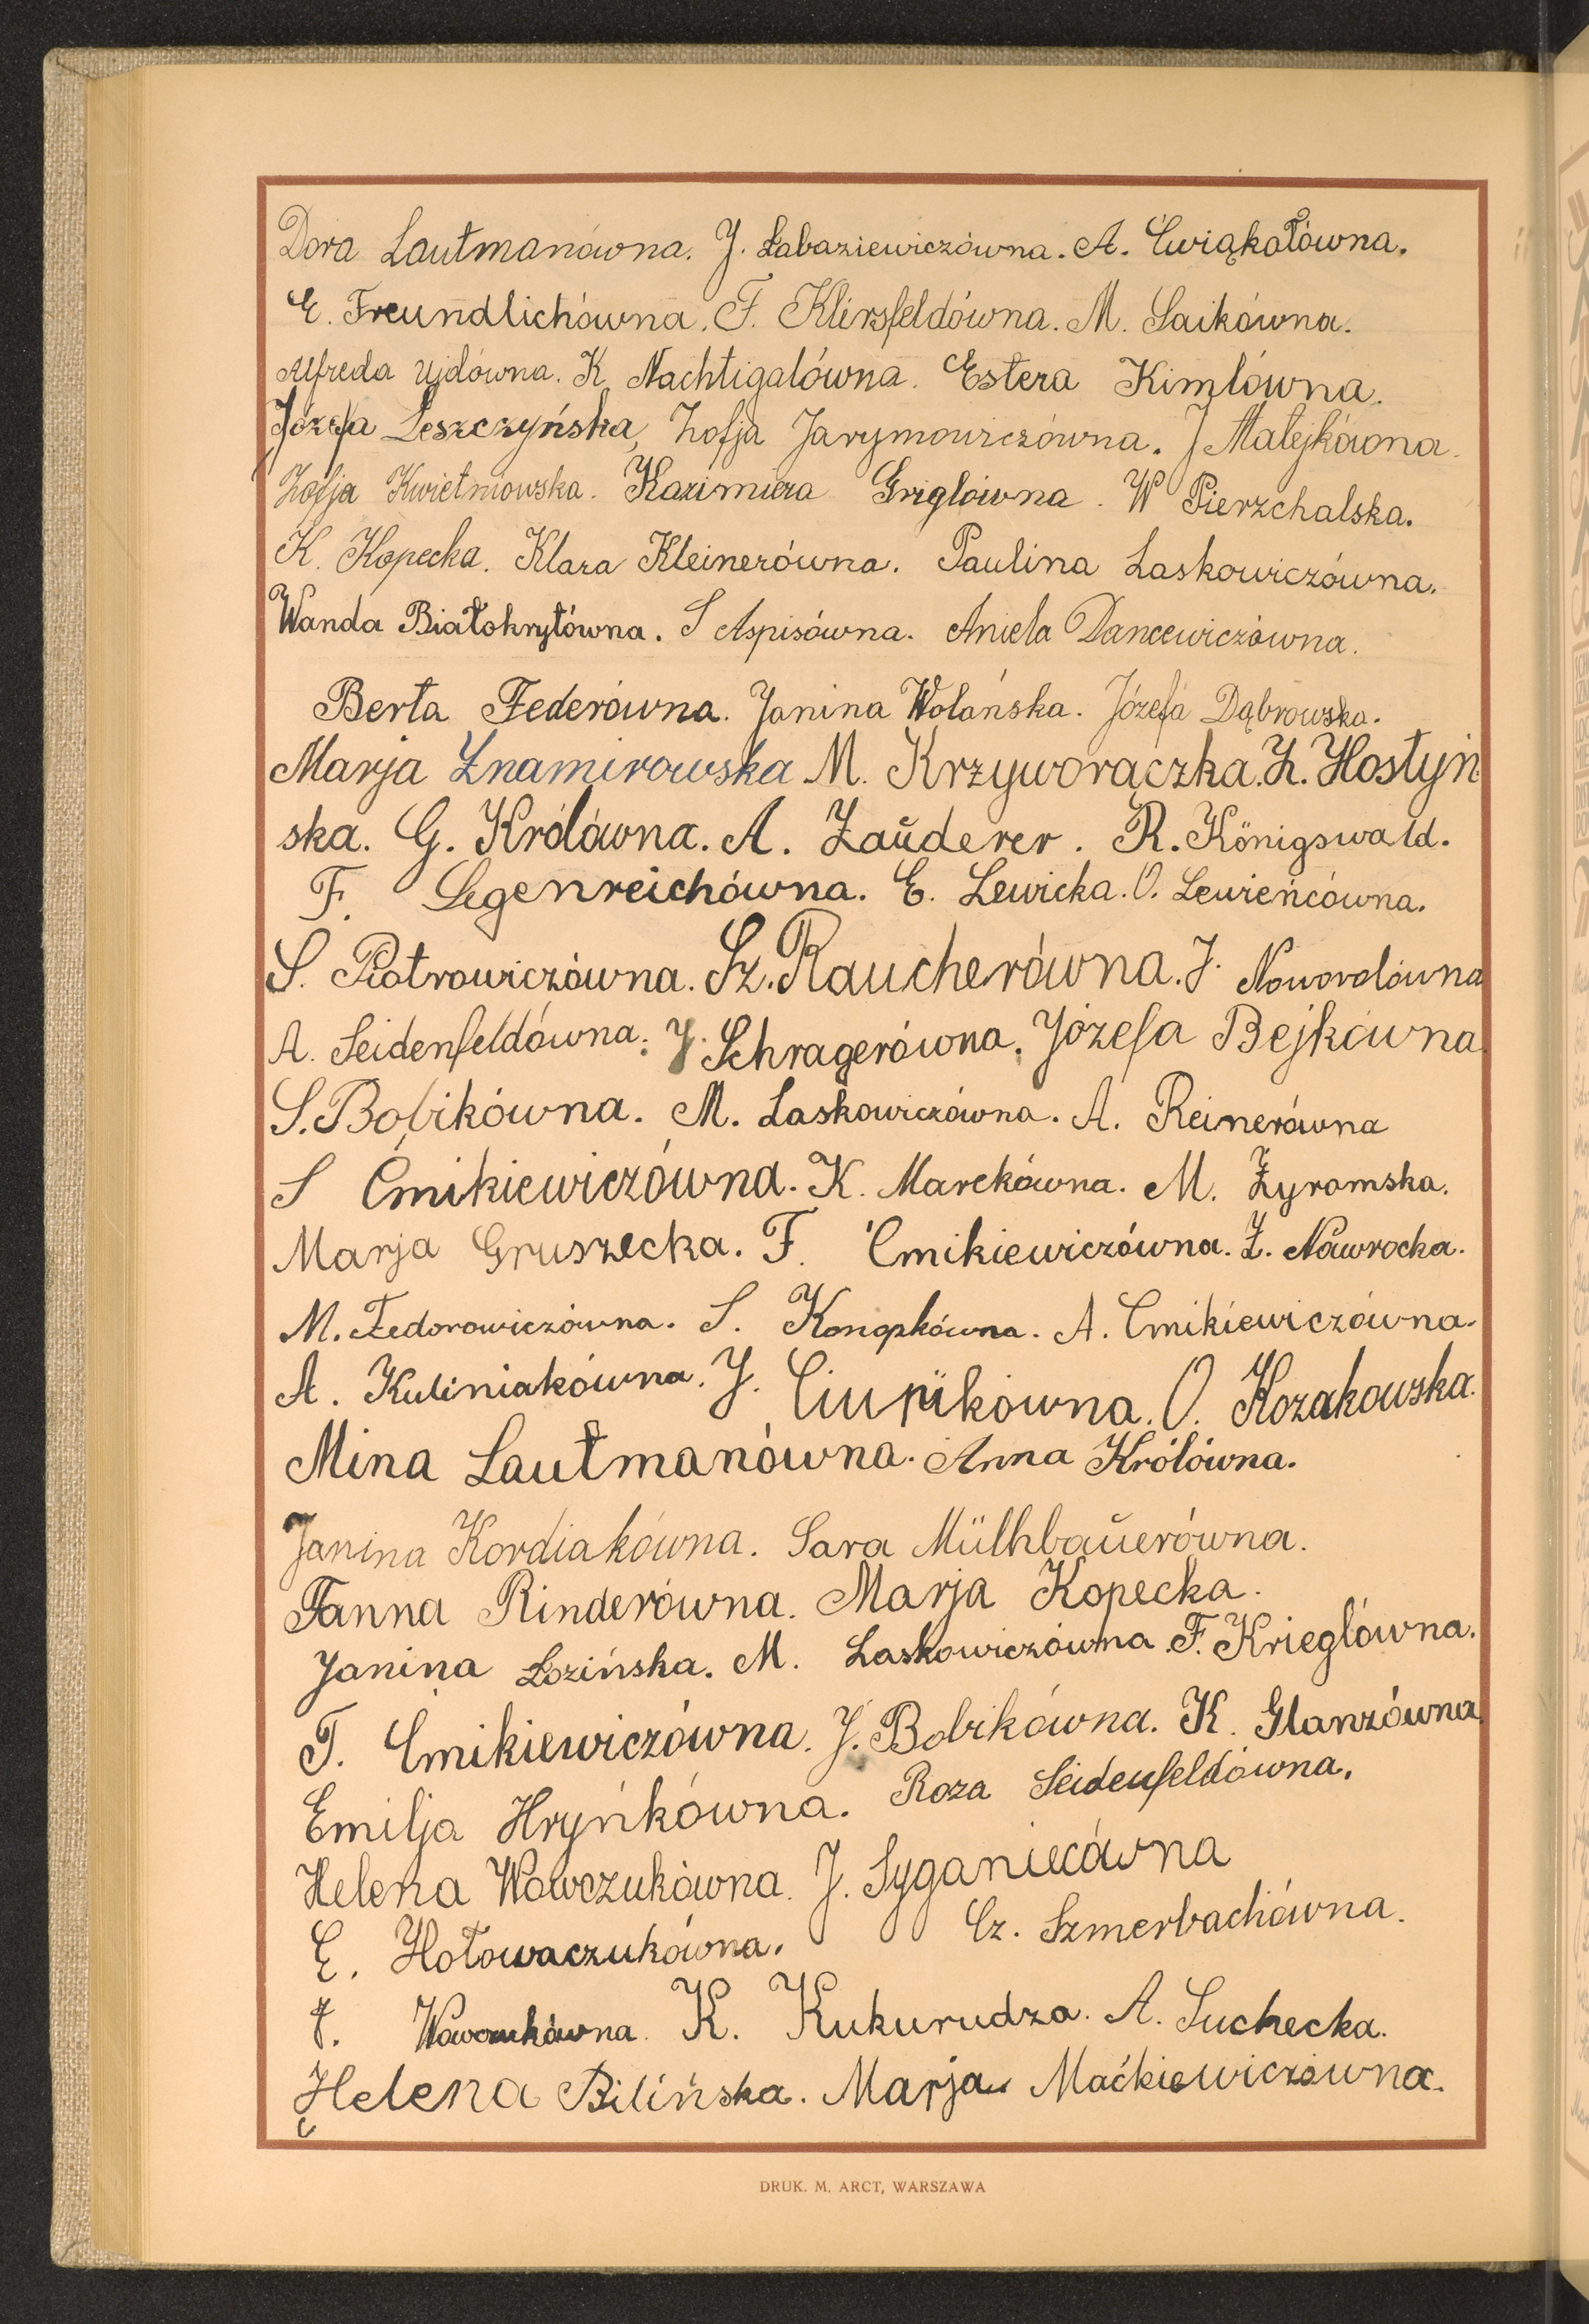 Dora Lautmanówna. J. Łabaziewiczówna. A. Ćwiąkałówna.
E. Freundlichówna. F. Klirsfeldówna. M. Saikówna.
Alfreda Ujdówna. K. Nachtigalówna. Estera Kimlówna.
Józefa Leszczyńska, Zofja Jarymowiczówna. J Matejkówna.
Zofja Kwietniowska. Kazimiera Griglówna. W Pierzchalska.
K. Kopecka. Klara Kleinerówna. Paulina Laskowiczówna.
Wanda Białokrytówna. S Aspisówna. Aniela Dancewiczówna.
Berta Federówna. Janina Wolańska. Józefa Dąbrowska.
Marja Znamirowska M. Krzyworączka. Z. Hostyń
ska. G. Królówna. A. Zaŭderer. R. Königswald.
F. Segenreichówna. E. Lewicka. O. Lewieńcówna.
S. Piotrowiczówna. Sz. Raucherówna. J. Noworolówna
A. Seidenfeldówna. J. Schragerówna. Józefa Bejkówna.
S. Bobikówna. M. Laskowiczówna. A. Reinerówna
S Ćmikiewiczówna. K. Marckówna. M. Żyromska.
Marja Gruszecka. F. Ćmikiewiczówna. Z. Nawrocka.
M. Fedorowiczówna. S. Konopkówna. A. Ćmikiewiczówna.
A. Kuliniakówna. J. Ciupikówna. O. Kozakowska.
Mina Lautmanówna. Anna Królówna.
Janina Kordiakówna. Sara Mülhbaŭerówna.
Fanna Rinderówna. Marja Kopecka.
Janina Łozińska. M. Laskowiczówna F. Krieglówna.
T. Ćmikiewiczówna. J. Bobikówna. K. Glanzówna.
Emilja Hryńkówna. Roza Seidenfeldówna.
Helena Wowczukówna. J. Syganiecówna
E. Hołowaczukówna. Cz. Szmerbachówna.
J. Wowczukówna. K. Kukurudza. A. Suchecka.
Helena Bilińska. Marja Maćkiewiczówna.
DRUK. M. ARCT, WARSZAWA